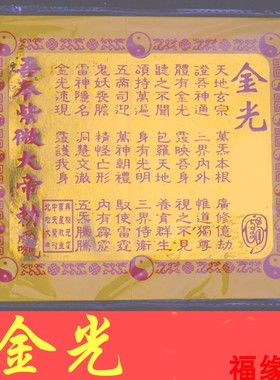 金光
天地玄宗 萬炁本根 廣修億劫
證吾神通 三界內外 惟道獨尊
體有金光 覆映吾身 視之不見
聽之不聞 包羅天地 養育群生
誦持萬遍 身有光明 三界侍衛
五帝司迎 萬神朝禮 馭使雷霆
鬼妖喪膽 精怪亡形 內有霹靂
雷神隱名 洞慧交徹 五炁騰騰
金光速現 覆護我身
吾奉紫微大帝勅
金光
福缘